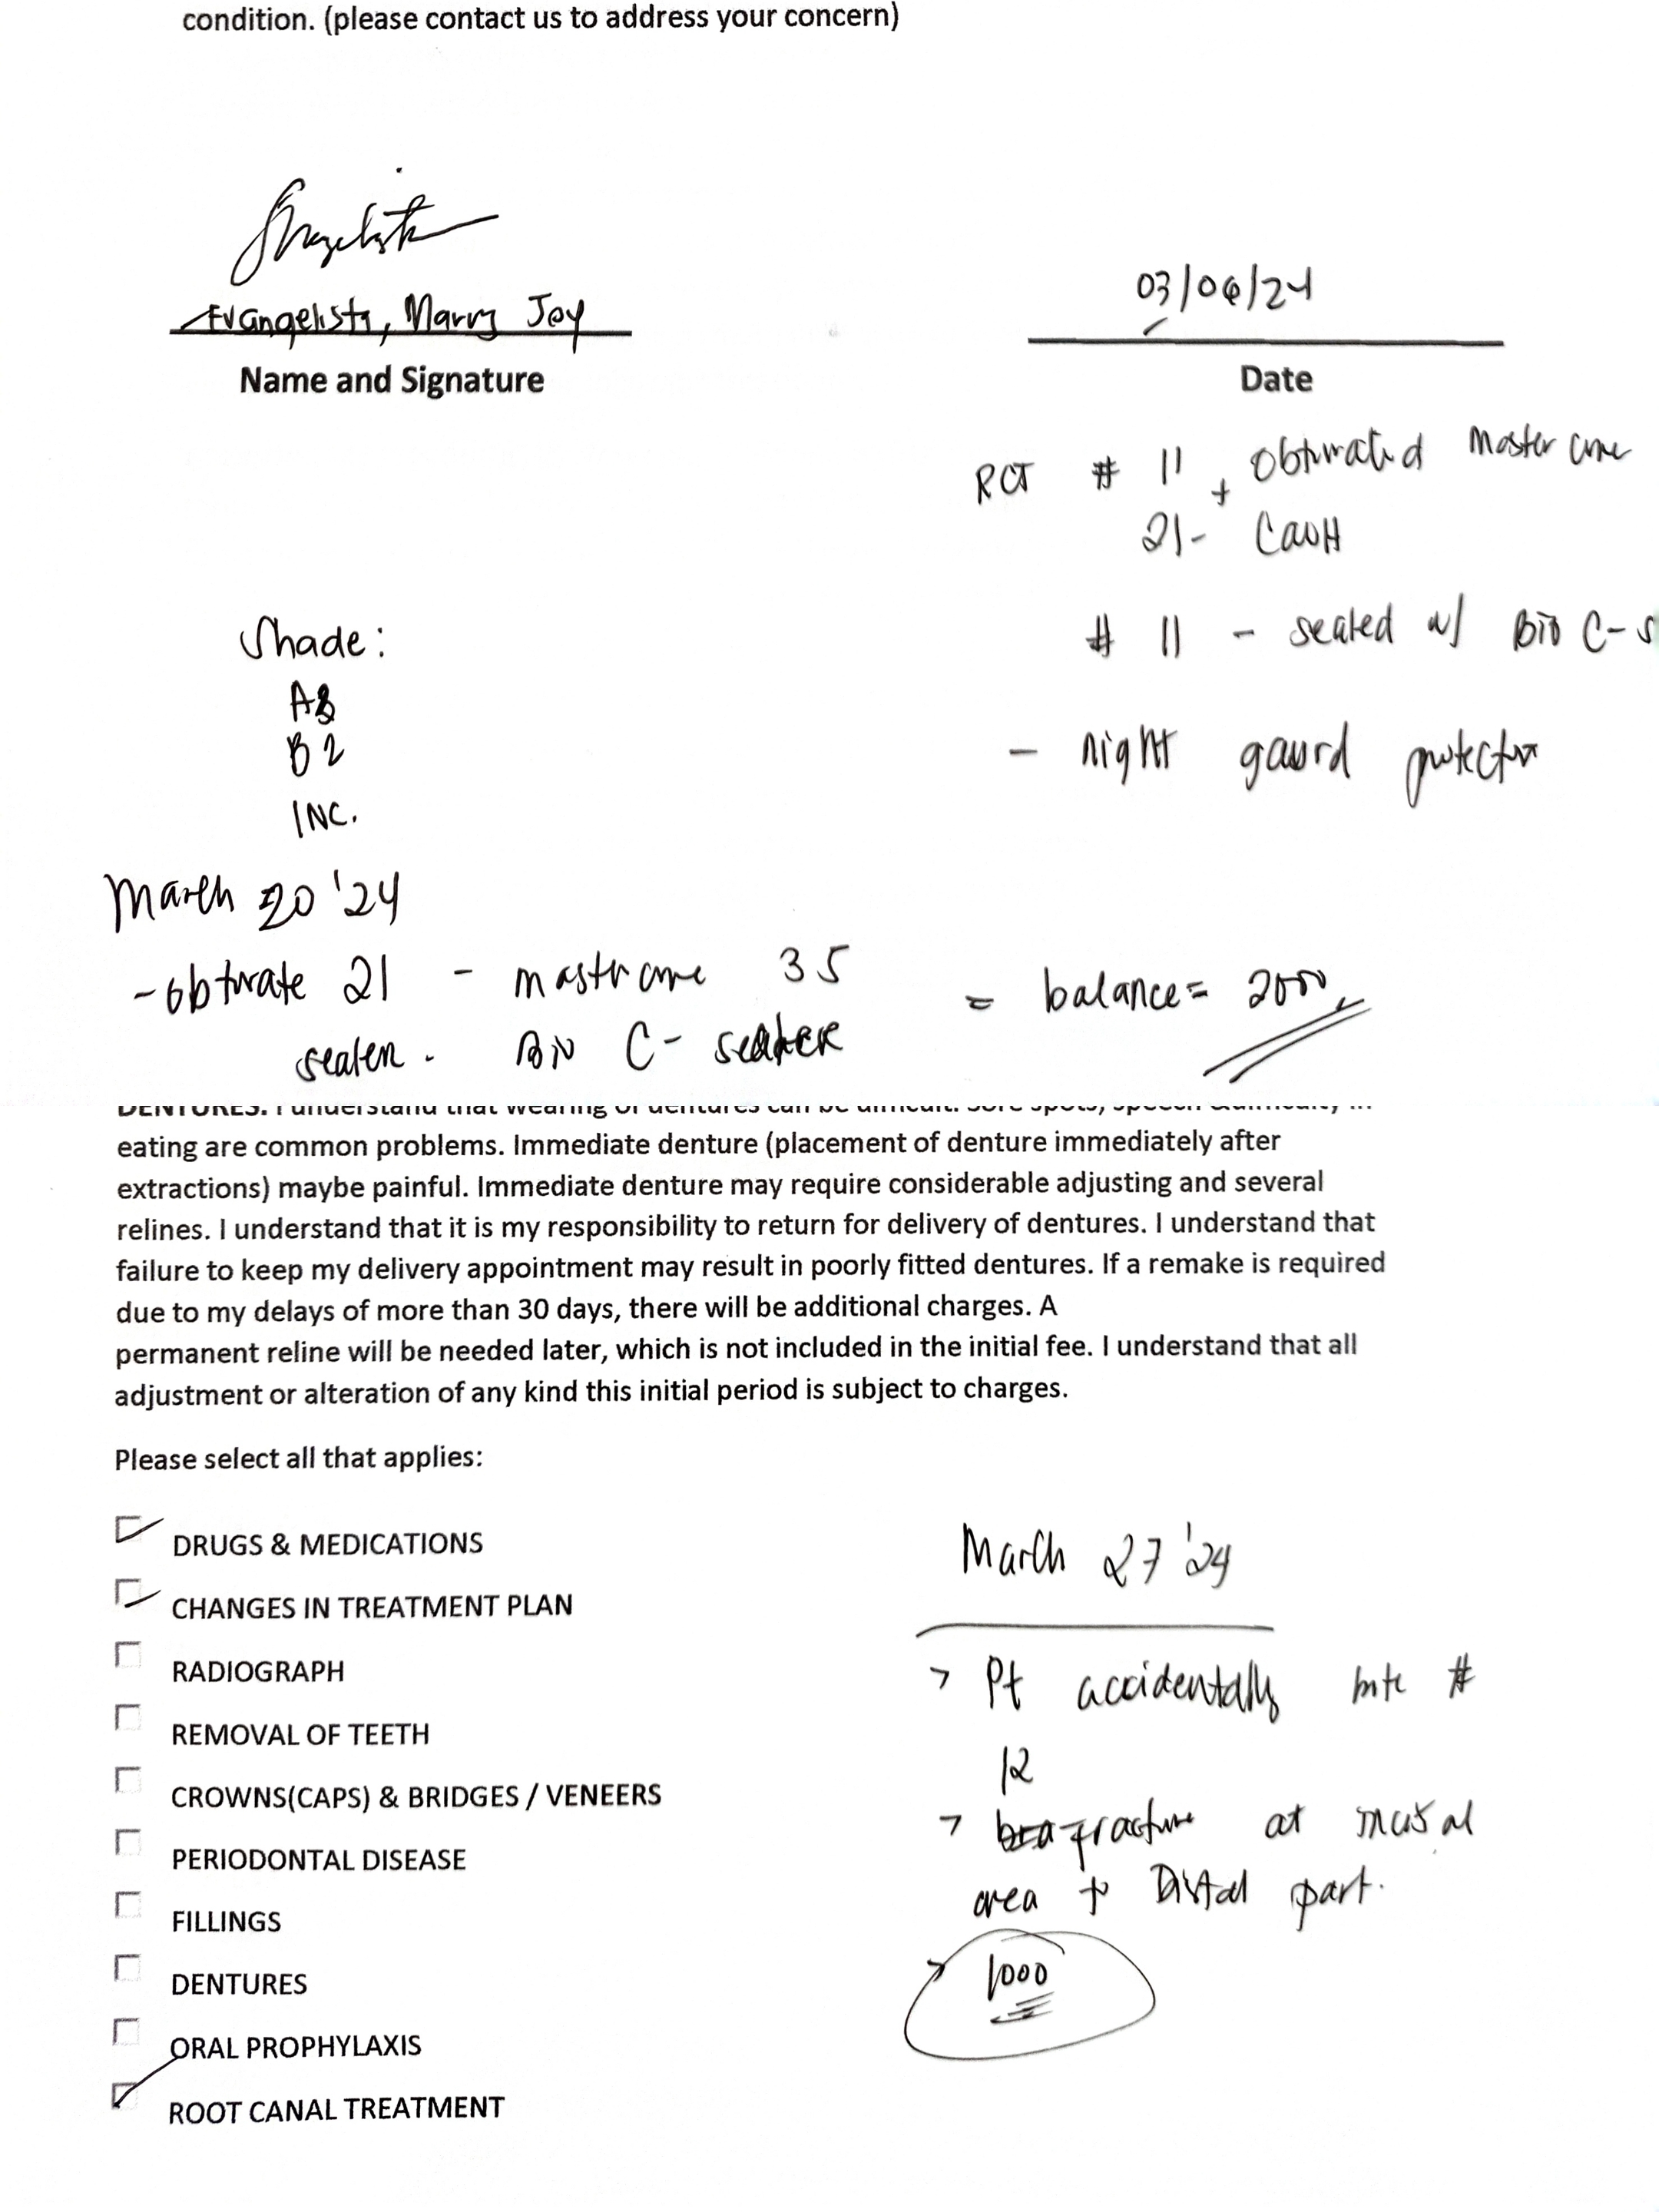 condition. (please contact us to address your concern)
Evangelista, Marry Joy
03/06/24
Name and Signature
Date
RCT # 11 + Obturated master cone
21- CaOH
# 11 - sealed w/ Bio C-S
- night gaurd protector
Shade:
A3
B2
INC.
March 20 '24
-obturate 21 - master cone 35
= balance= 2000
sealer - Bio C- sealer
DENTURES. I understand that wearing of dentures can be difficult. Sore spots, speech & difficulty in
eating are common problems. Immediate denture (placement of denture immediately after
extractions) maybe painful. Immediate denture may require considerable adjusting and several
relines. I understand that it is my responsibility to return for delivery of dentures. I understand that
failure to keep my delivery appointment may result in poorly fitted dentures. If a remake is required
due to my delays of more than 30 days, there will be additional charges. A
permanent reline will be needed later, which is not included in the initial fee. I understand that all
adjustment or alteration of any kind this initial period is subject to charges.
Please select all that applies:
DRUGS & MEDICATIONS
CHANGES IN TREATMENT PLAN
RADIOGRAPH
REMOVAL OF TEETH
CROWNS(CAPS) & BRIDGES / VENEERS
PERIODONTAL DISEASE
FILLINGS
DENTURES
ORAL PROPHYLAXIS
ROOT CANAL TREATMENT
March 27 '24
> Pt accidentally bite #
12
> fracture at incisal
area + Distal part.
> 1000